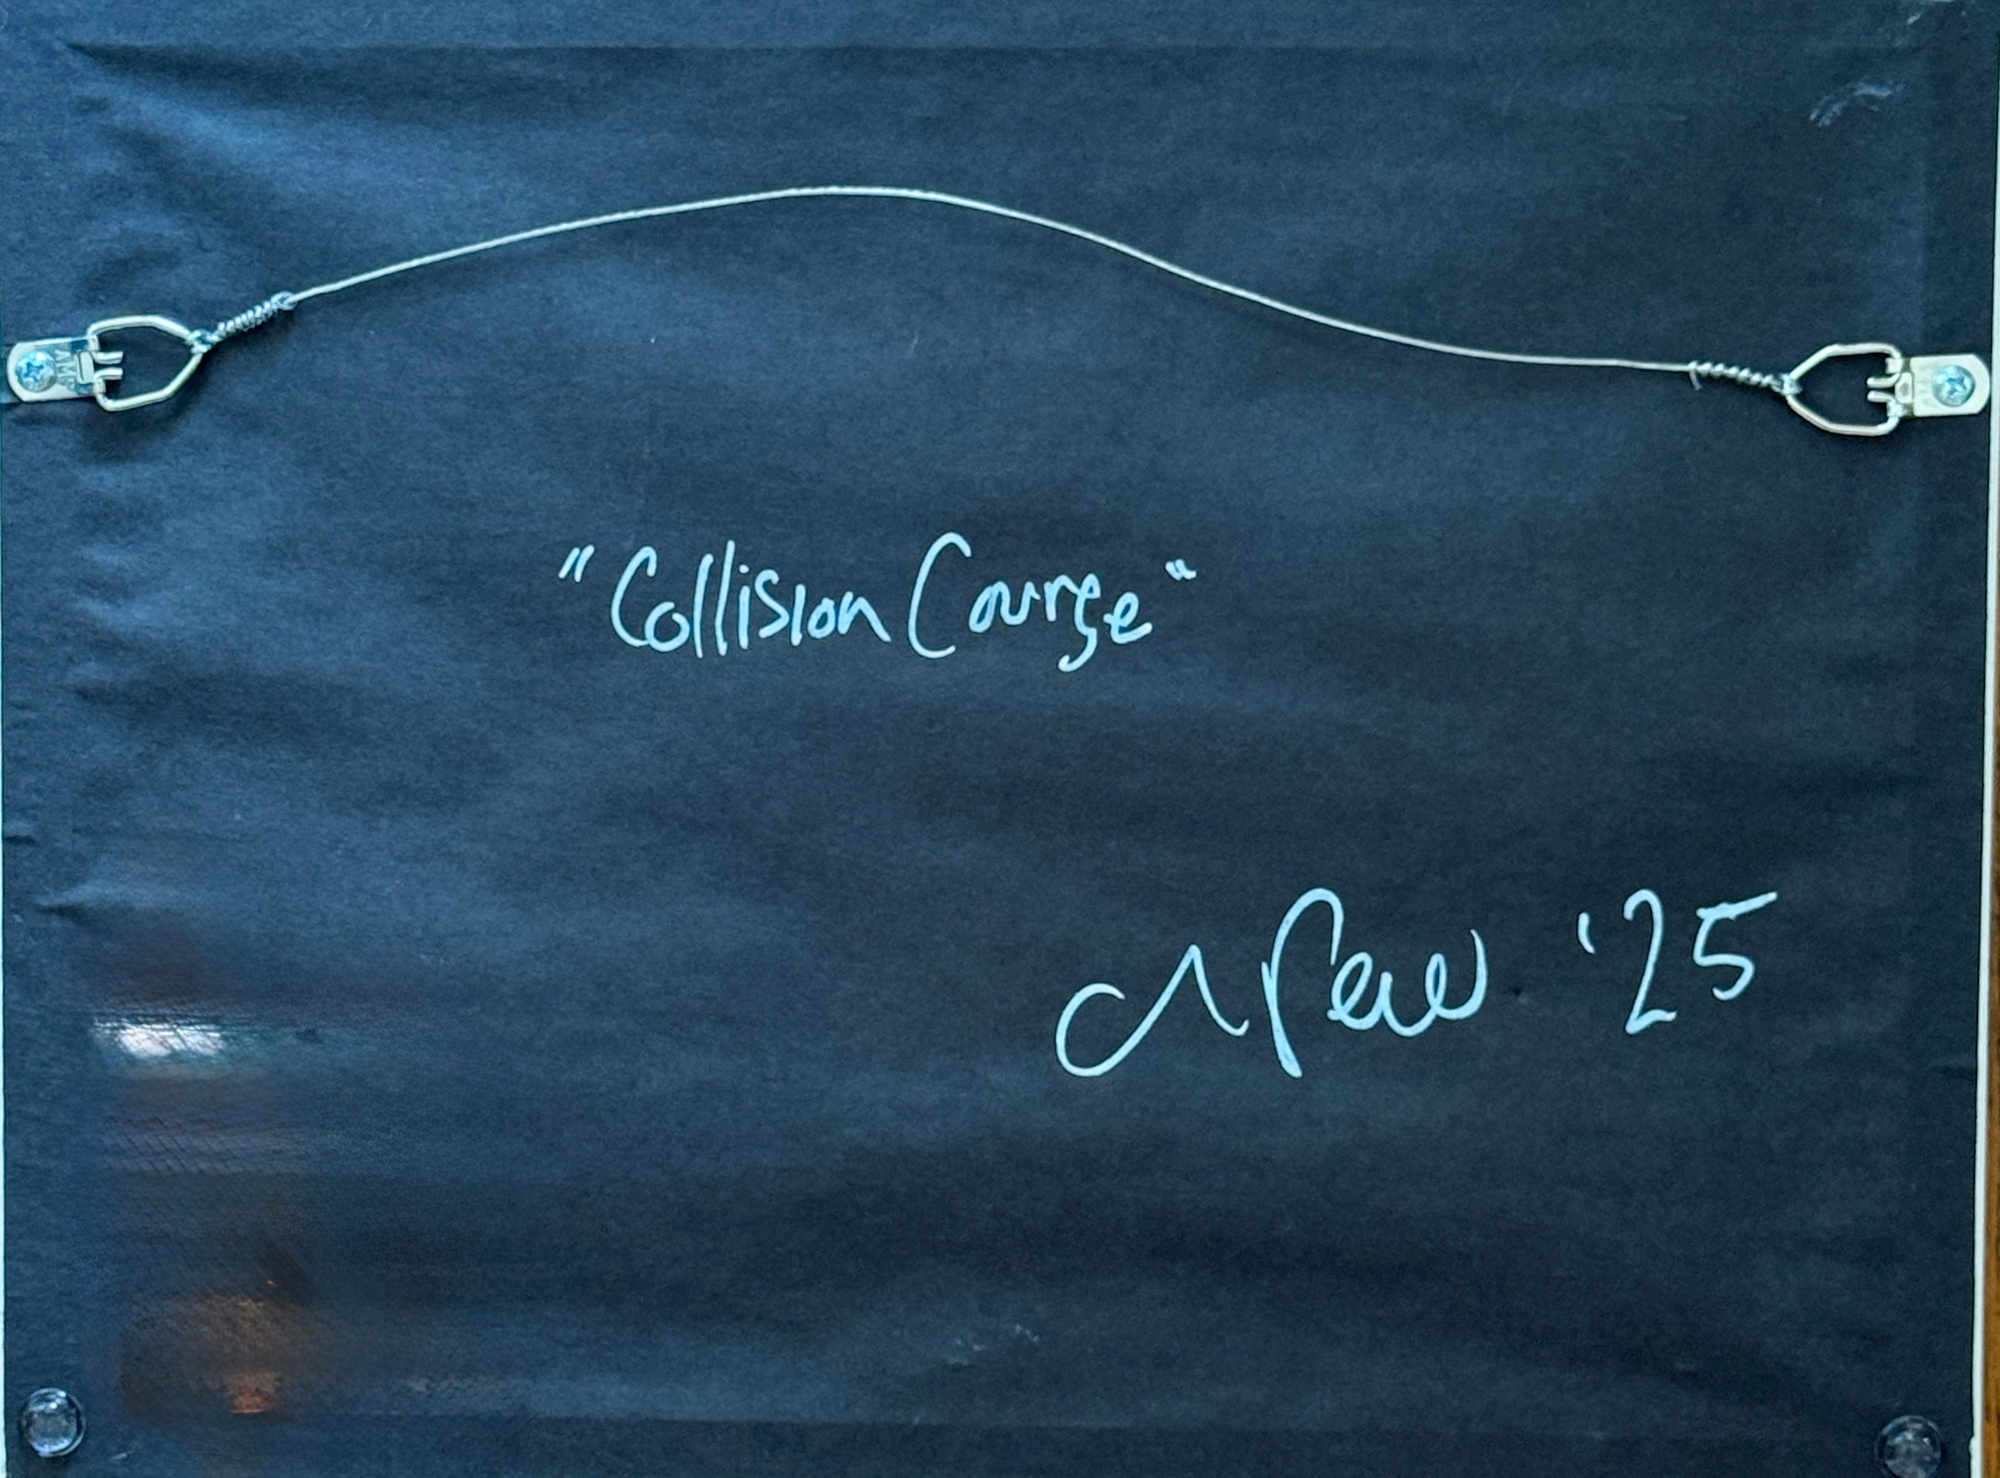 "Collision Course"
A Pew '25
AMP